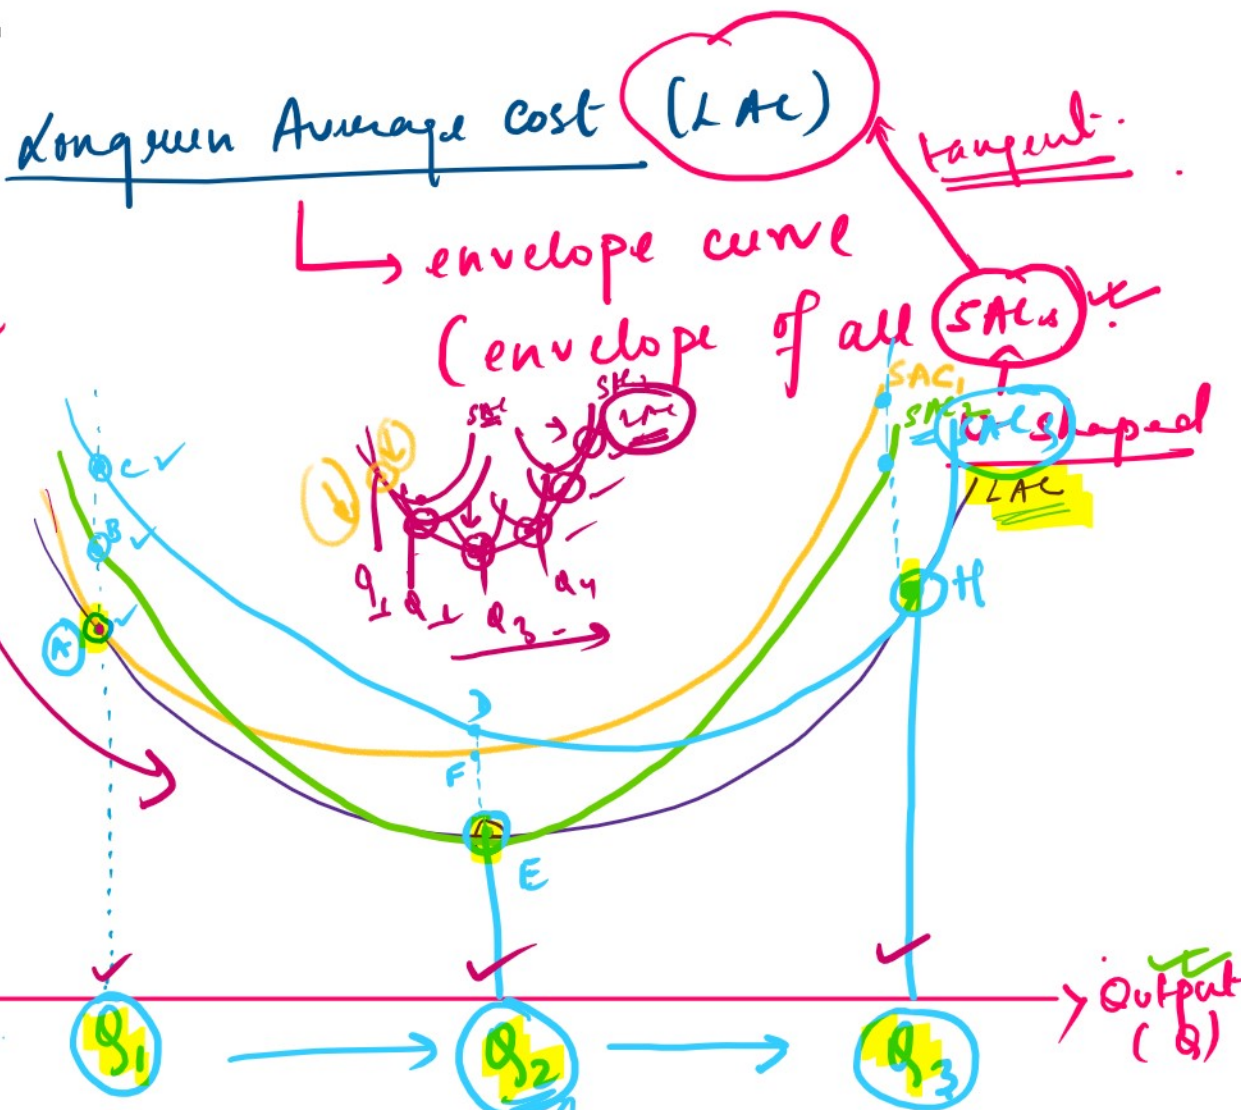 Longrun Average cost (LAC)
tangent.
envelope curve
(envelope of all SACs
SAC1
SAC2
SAC3
shaped
LAC
SAC
LAC
Q1 Q2 Q3 Q4
C
B
A
D
F
E
H
Q1 Q2 Q3
Output
(Q)